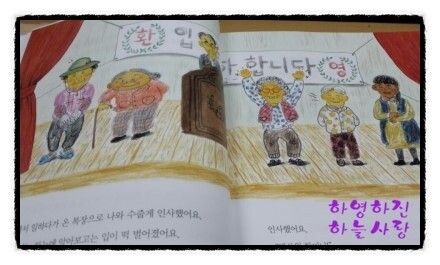 환 입 합니다 영
에서 일하다가 온 복장으로 나와 수줍게 인사했어요.
알아보고는 입이 떡 벌어졌어요.
인사했어요.
하영하진
하늘사랑